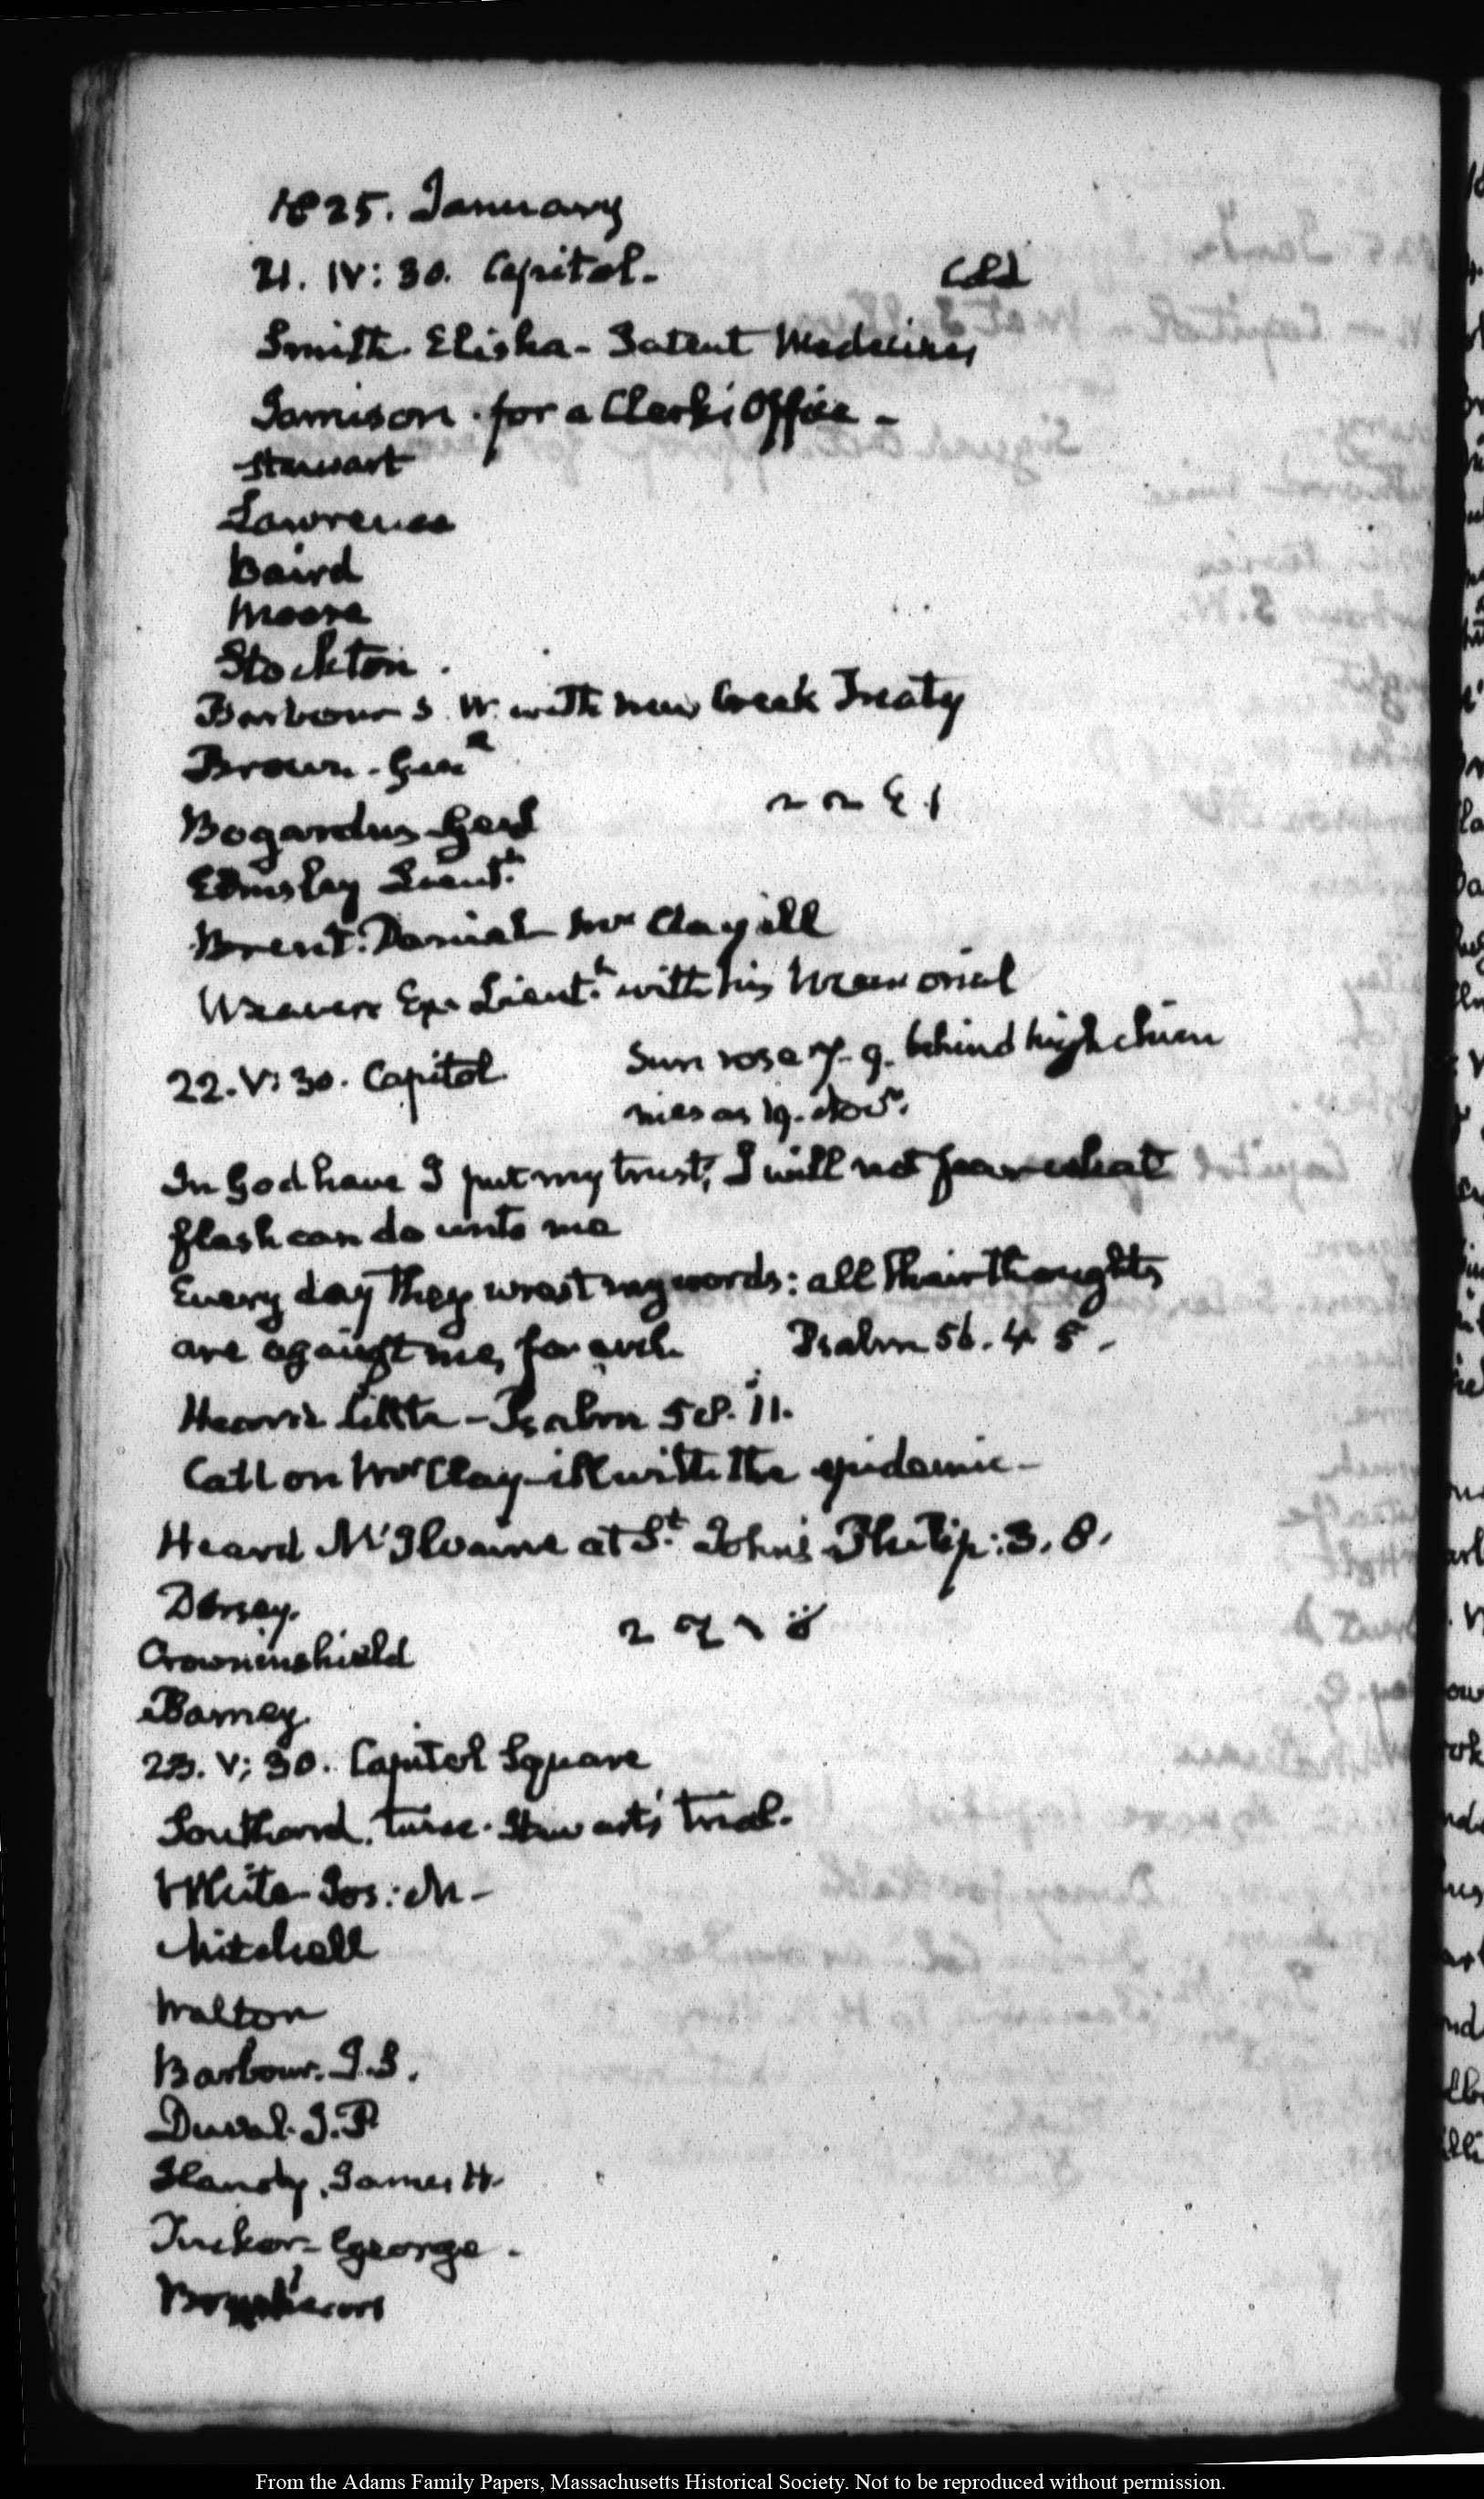 1825. January
21. IV: 30. Capitol. Cld
Smith. Elisha - Patent Medicines
Jamison. for a Clerk's Office -
Stewart
Lawrence
Baird
Moore
Stockton.
Barbour S. W. with new Creek Treaty
Brown. Genl
Bogardus Genl
Lieutt.
Brent. Daniel Mr Clay ill
Weaver Ex. Lieutt. with his Memorial
22. V: 30. Capitol Sun rose 7. 9. behind high chim
nies as 19. Novr.
In God have I put my trust, I will not fear what
flesh can do unto me
Every day they wrest my words: all their thoughts
are against me, for evil. Psalm 56. 4 5.
Heard Little - Psalm 58. 11.
Call on Mr Clay - ill with the epidemic -
Heard McIlvaine at St. John's Philip: 3. 8.
Dorsey.
Crowninshield
Barney.
23. V: 30. Capitol Square
Southard. twice. Stewart's trial.
White Jos: M -
Mitchell
Walton
Barbour. J. S.
Duval. J. P.
Handy. James H.
Tucker - George.
From the Adams Family Papers, Massachusetts Historical Society. Not to be reproduced without permission.